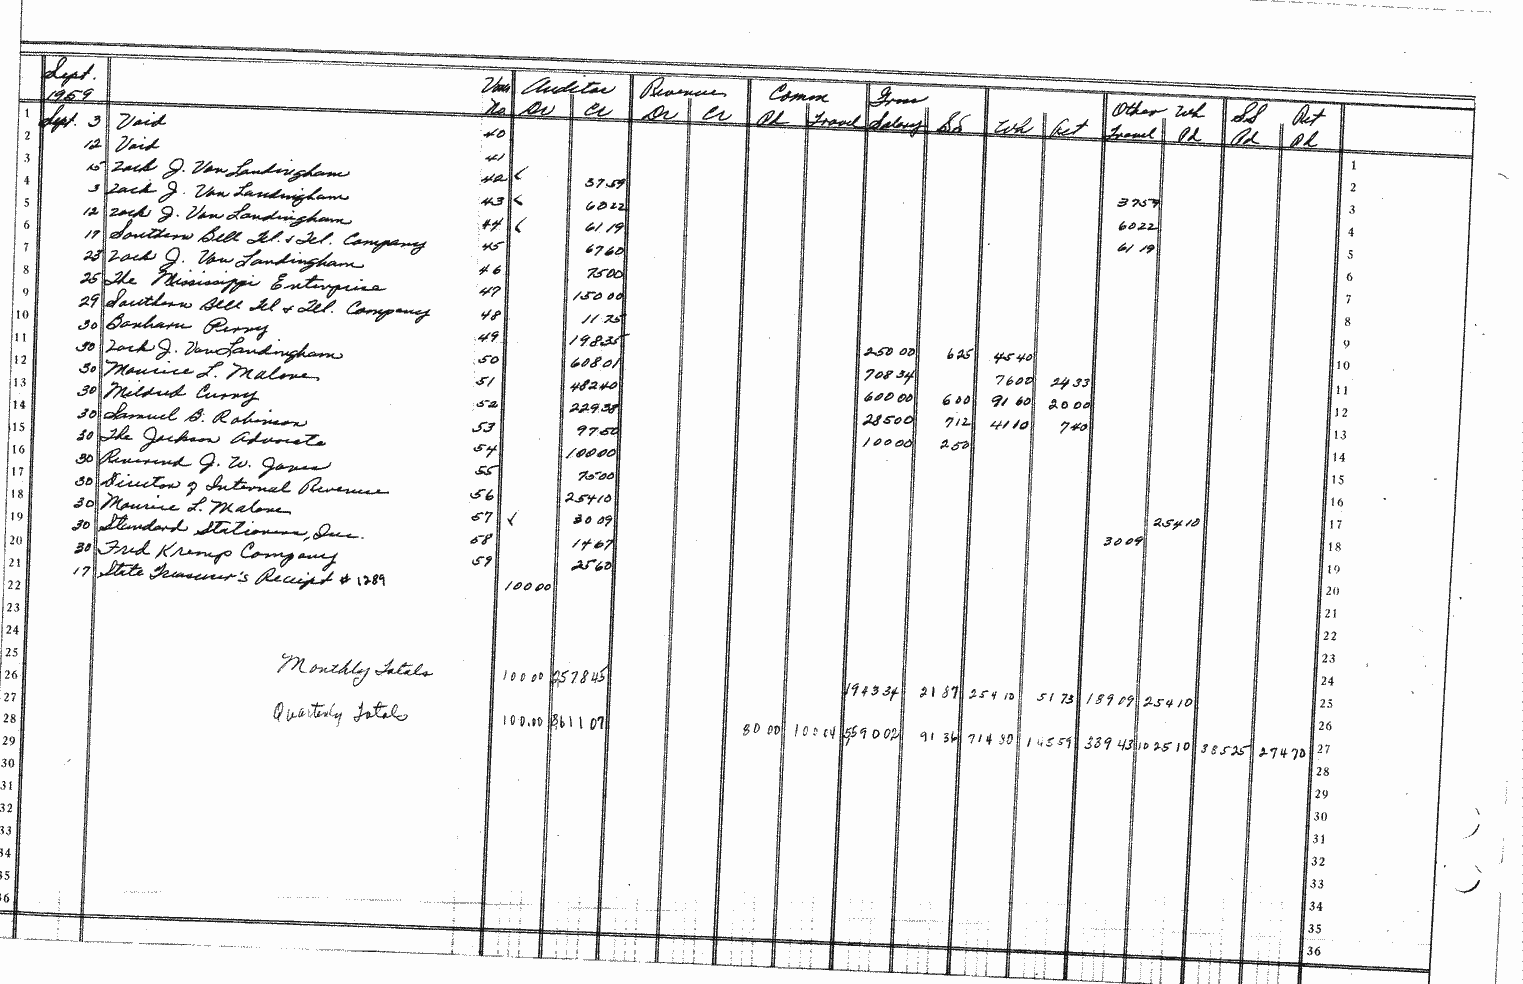 Sept. 1959 Vou No Auditor Dr Cr Revenue Dr Cr Comm Pd Travel Gross Salary SS Wh Ret Other Travel Wh Pd SS Pd Ret Pd
1 Sept. 3 Void 40 1
2 12 Void 41 2
3 15 Zack J. Van Landingham 42 ✓ 37 59 37 59 3
4 3 Zack J. Van Landingham 43 ✓ 60 22 60 22 4
5 12 Zack J. Van Landingham 44 ✓ 61 19 61 19 5
6 17 Southern Bell Tel. & Tel. Company 45 67 60 6
7 23 Zack J. Van Landingham 46 75 00 7
8 25 The Mississippi Enterprise 47 150 00 8
9 29 Southern Bell Tel & Tel. Company 48 11 75 9
10 30 Barbara Perry 49 198 35 250 00 6 25 45 40 10
11 30 Zack J. Van Landingham 50 608 01 708 34 76 00 24 33 11
12 30 Maurice L. Malone 51 482 40 600 00 6 00 91 60 20 00 12
13 30 Mildred Curry 52 229 38 285 00 7 12 41 10 7 40 13
14 30 Samuel B. Robinson 53 97 50 100 00 2 50 14
15 30 The Jackson Advocate 54 100 00 15
16 30 Reverend J. W. Jones 55 75 00 16
17 30 Director of Internal Revenue 56 254 10 254 10 17
18 30 Maurice L. Malone 57 ✓ 30 09 30 09 18
19 30 Standard Stationers, Inc. 58 14 67 19
20 30 Fred Kremps Company 59 25 60 20
21 17 State Treasurer's Receipt # 1289 100 00 21
22 22
23 23
24 24
25 Monthly Totals 100 00 2578 45 1943 34 21 87 254 10 51 73 189 09 254 10 25
26 26
27 Quarterly Totals 100.00 8611 07 80 00 100 04 5590 02 91 36 714 30 145 59 339 43 1025 10 385 25 274 70 27
28 28
29 29
30 30
31 31
32 32
33 33
34 34
35 35
36 36